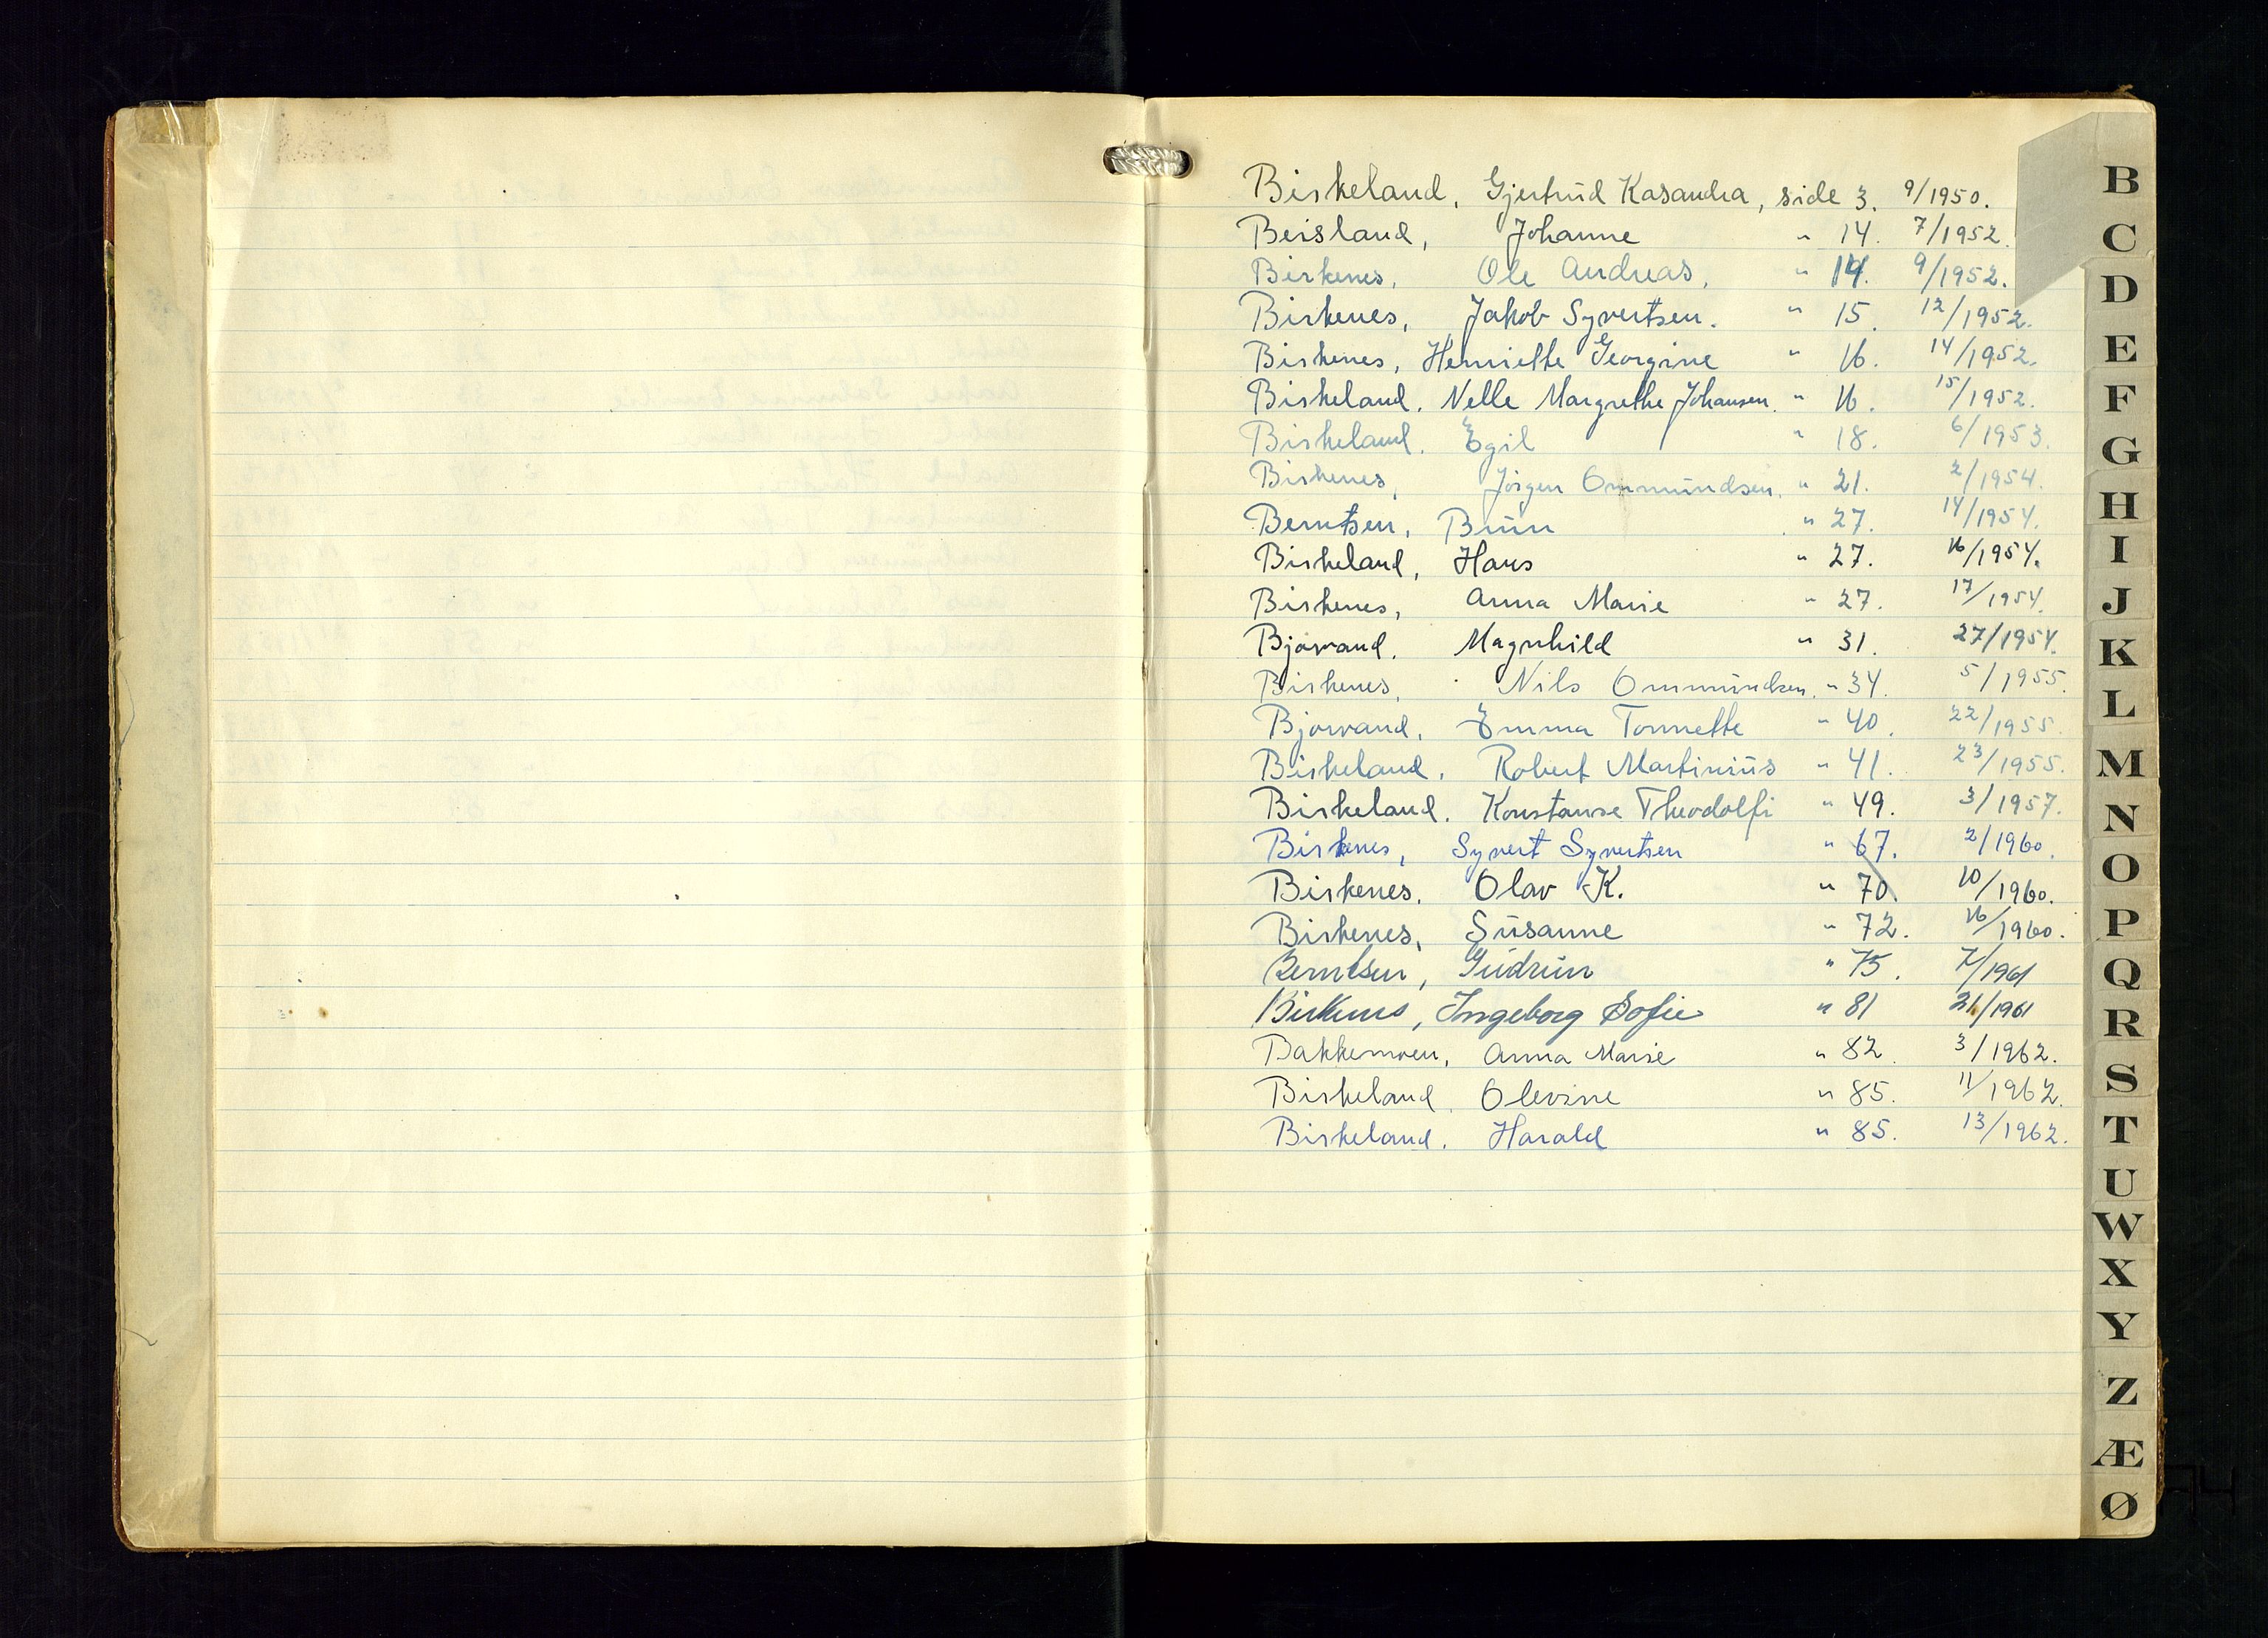 Birkeland, Gjertrud Kasandra, side 3. 9/1950.
Beisland, Johanne " 14. 7/1952.
Birkenes, Ole Andreas, " 14. 9/1952.
Birkenes, Jakob Syvertsen. " 15. 12/1952.
Birkenes, Henriette Georgine " 16. 14/1952.
Birkeland. Nelle Margrethe Johansen. " 16. 15/1952.
Birkeland. Egil " 18. 6/1953.
Birkenes, Jörgen Ommundsen. " 21. 2/1954.
Berntsen, Brun " 27. 14/1954.
Birkeland, Hans " 27. 16/1954.
Birkenes, Anna Marie " 27. 17/1954.
Bjorvand. Magnhild " 31. 27/1954.
Birkenes, Nils Ommundsen. " 34. 5/1955.
Bjorvand, Emma Tonnette " 40. 22/1955.
Birkeland. Robert Martinius " 41. 23/1955.
Birkeland. Konstanse Theodolfi " 49. 3/1957.
Birkenes, Syvert Syvertsen " 67. 2/1960.
Birkenes. Olav K. " 70. 10/1960.
Birkenes, Susanne " 72. 16/1960.
Berntsen, Gudrun " 75. 7/1961
Birkenes, Ingeborg Sofie " 81 21/1961
Bakkemoen, Anna Marie " 82. 3/1962.
Birkeland. Olevine " 85. 11/1962.
Birkeland. Harald " 85. 13/1962.
B
C
D
E
F
G
H
I
J
K
L
M
N
O
P
Q
R
S
T
U
W
X
Y
Z
Æ
Ø